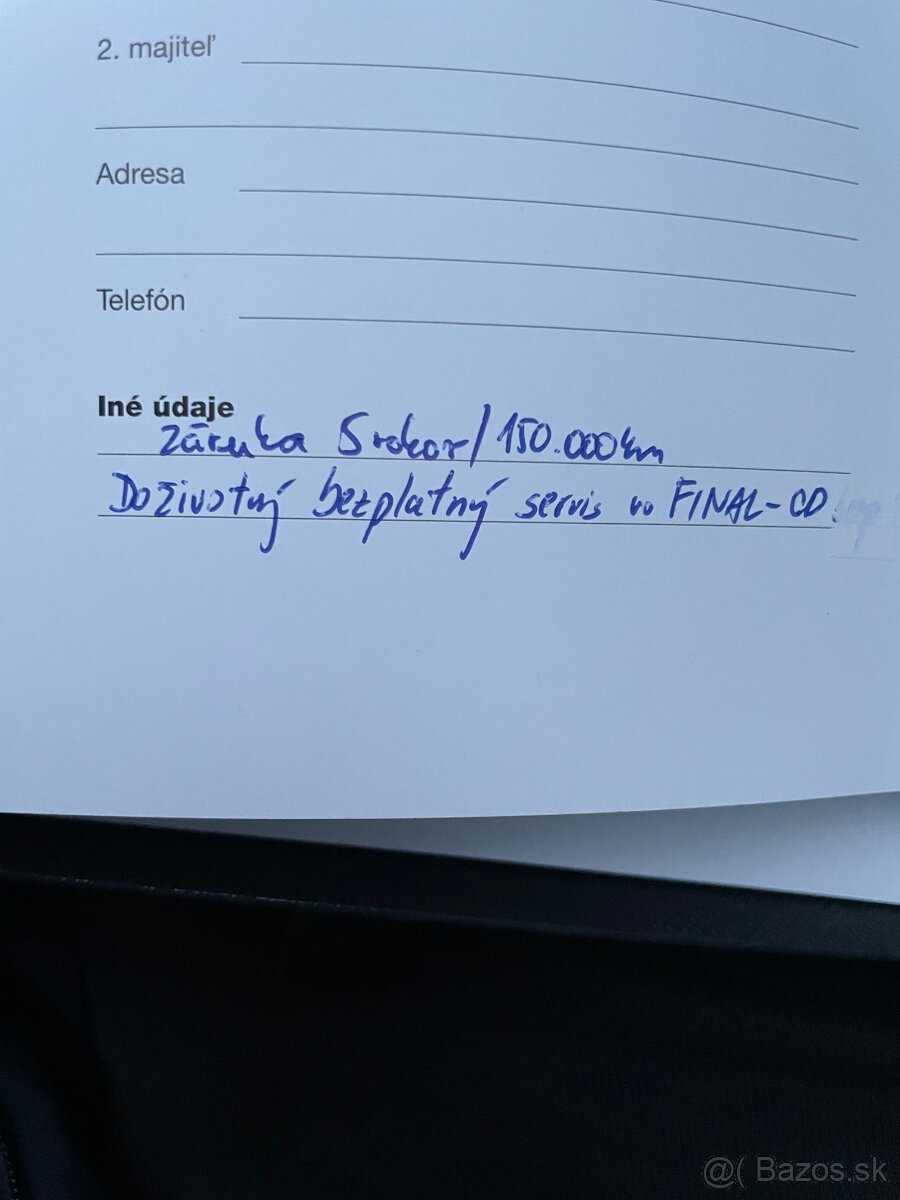 2. majiteľ
Adresa
Telefón
Iné údaje
Záruka 5 rokov/150.000km
Doživotný bezplatný servis vo FINAL-CD
@( Bazos.sk